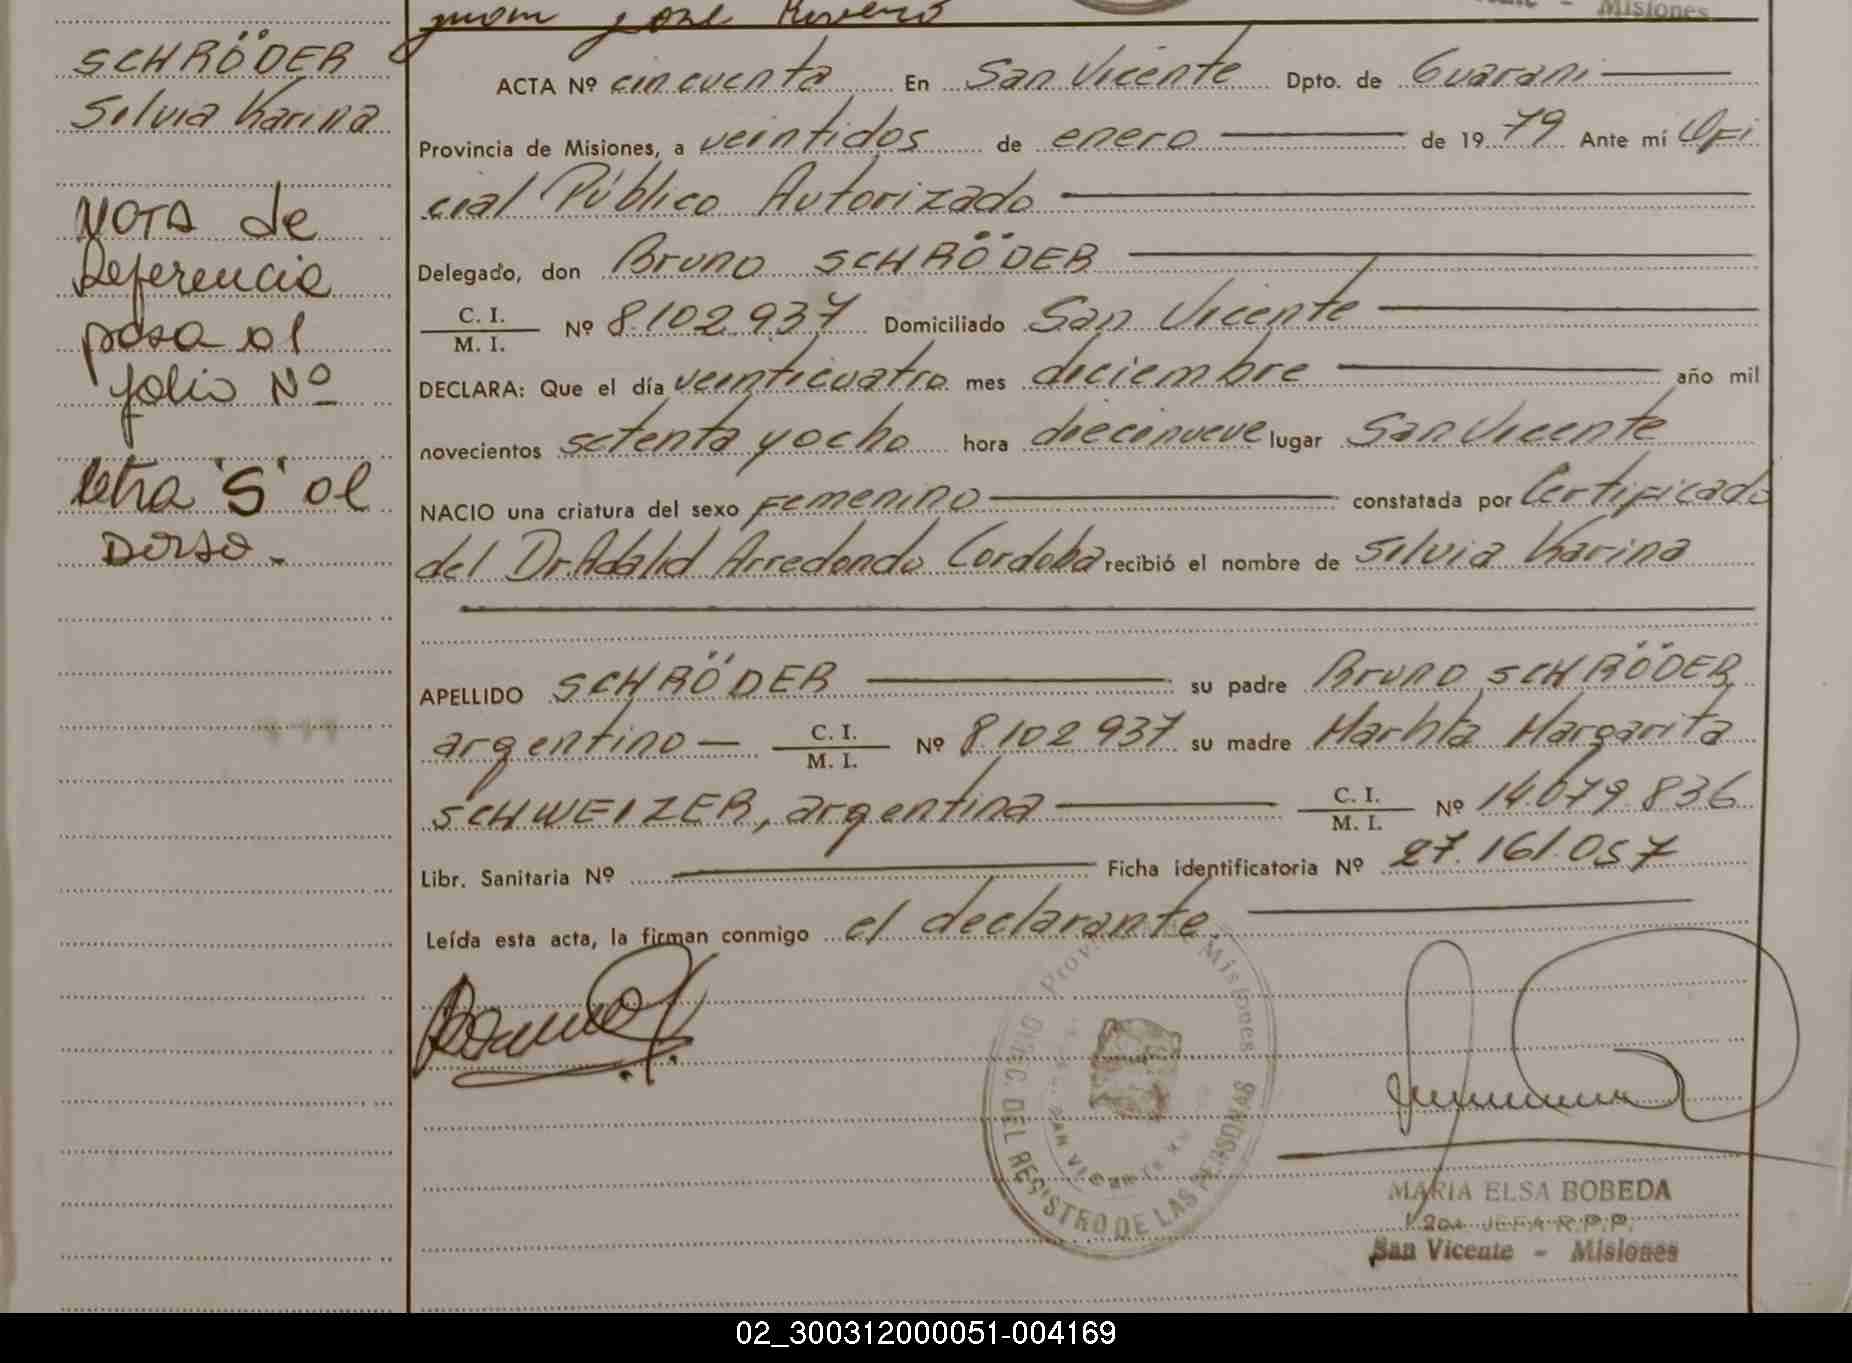 Juan José Rivero
Misiones
SCHRÖDER
Silvia Karina
NOTA de
Referencia
pasa al
folio Nº
letra "S" al
Dorso.-
ACTA Nº cincuenta En San Vicente Dpto. de Guarani
Provincia de Misiones, a veintidos de enero de 19 79 Ante mí Ofi
cial Público Autorizado
Delegado, don Bruno SCHRÖDER
C. I. / M. I. Nº 8.102.937 Domiciliado San Vicente
DECLARA: Que el día veinticuatro mes diciembre año mil
novecientos setenta y ocho hora diecinueve lugar San Vicente
NACIO una criatura del sexo Femenino constatada por Certificado
del Dr. Adalid Arredondo Cordoba recibió el nombre de Silvia Karina
APELLIDO SCHRÖDER su padre Bruno SCHRÖDER
argentino - C. I. / M. I. Nº 8.102.937 su madre Marhta Margarita
SCHWEIZER, argentina C. I. / M. I. Nº 14.079.836
Libr. Sanitaria Nº Ficha identificatoria Nº 27.161.057
Leída esta acta, la firman conmigo el declarante.
Misiones
DIREC. DEL REGISTRO DE LAS PERSONAS
SAN VICENTE
MARIA ELSA BOBEDA
JEFA R.P.P.
San Vicente - Misiones
02_300312000051-004169